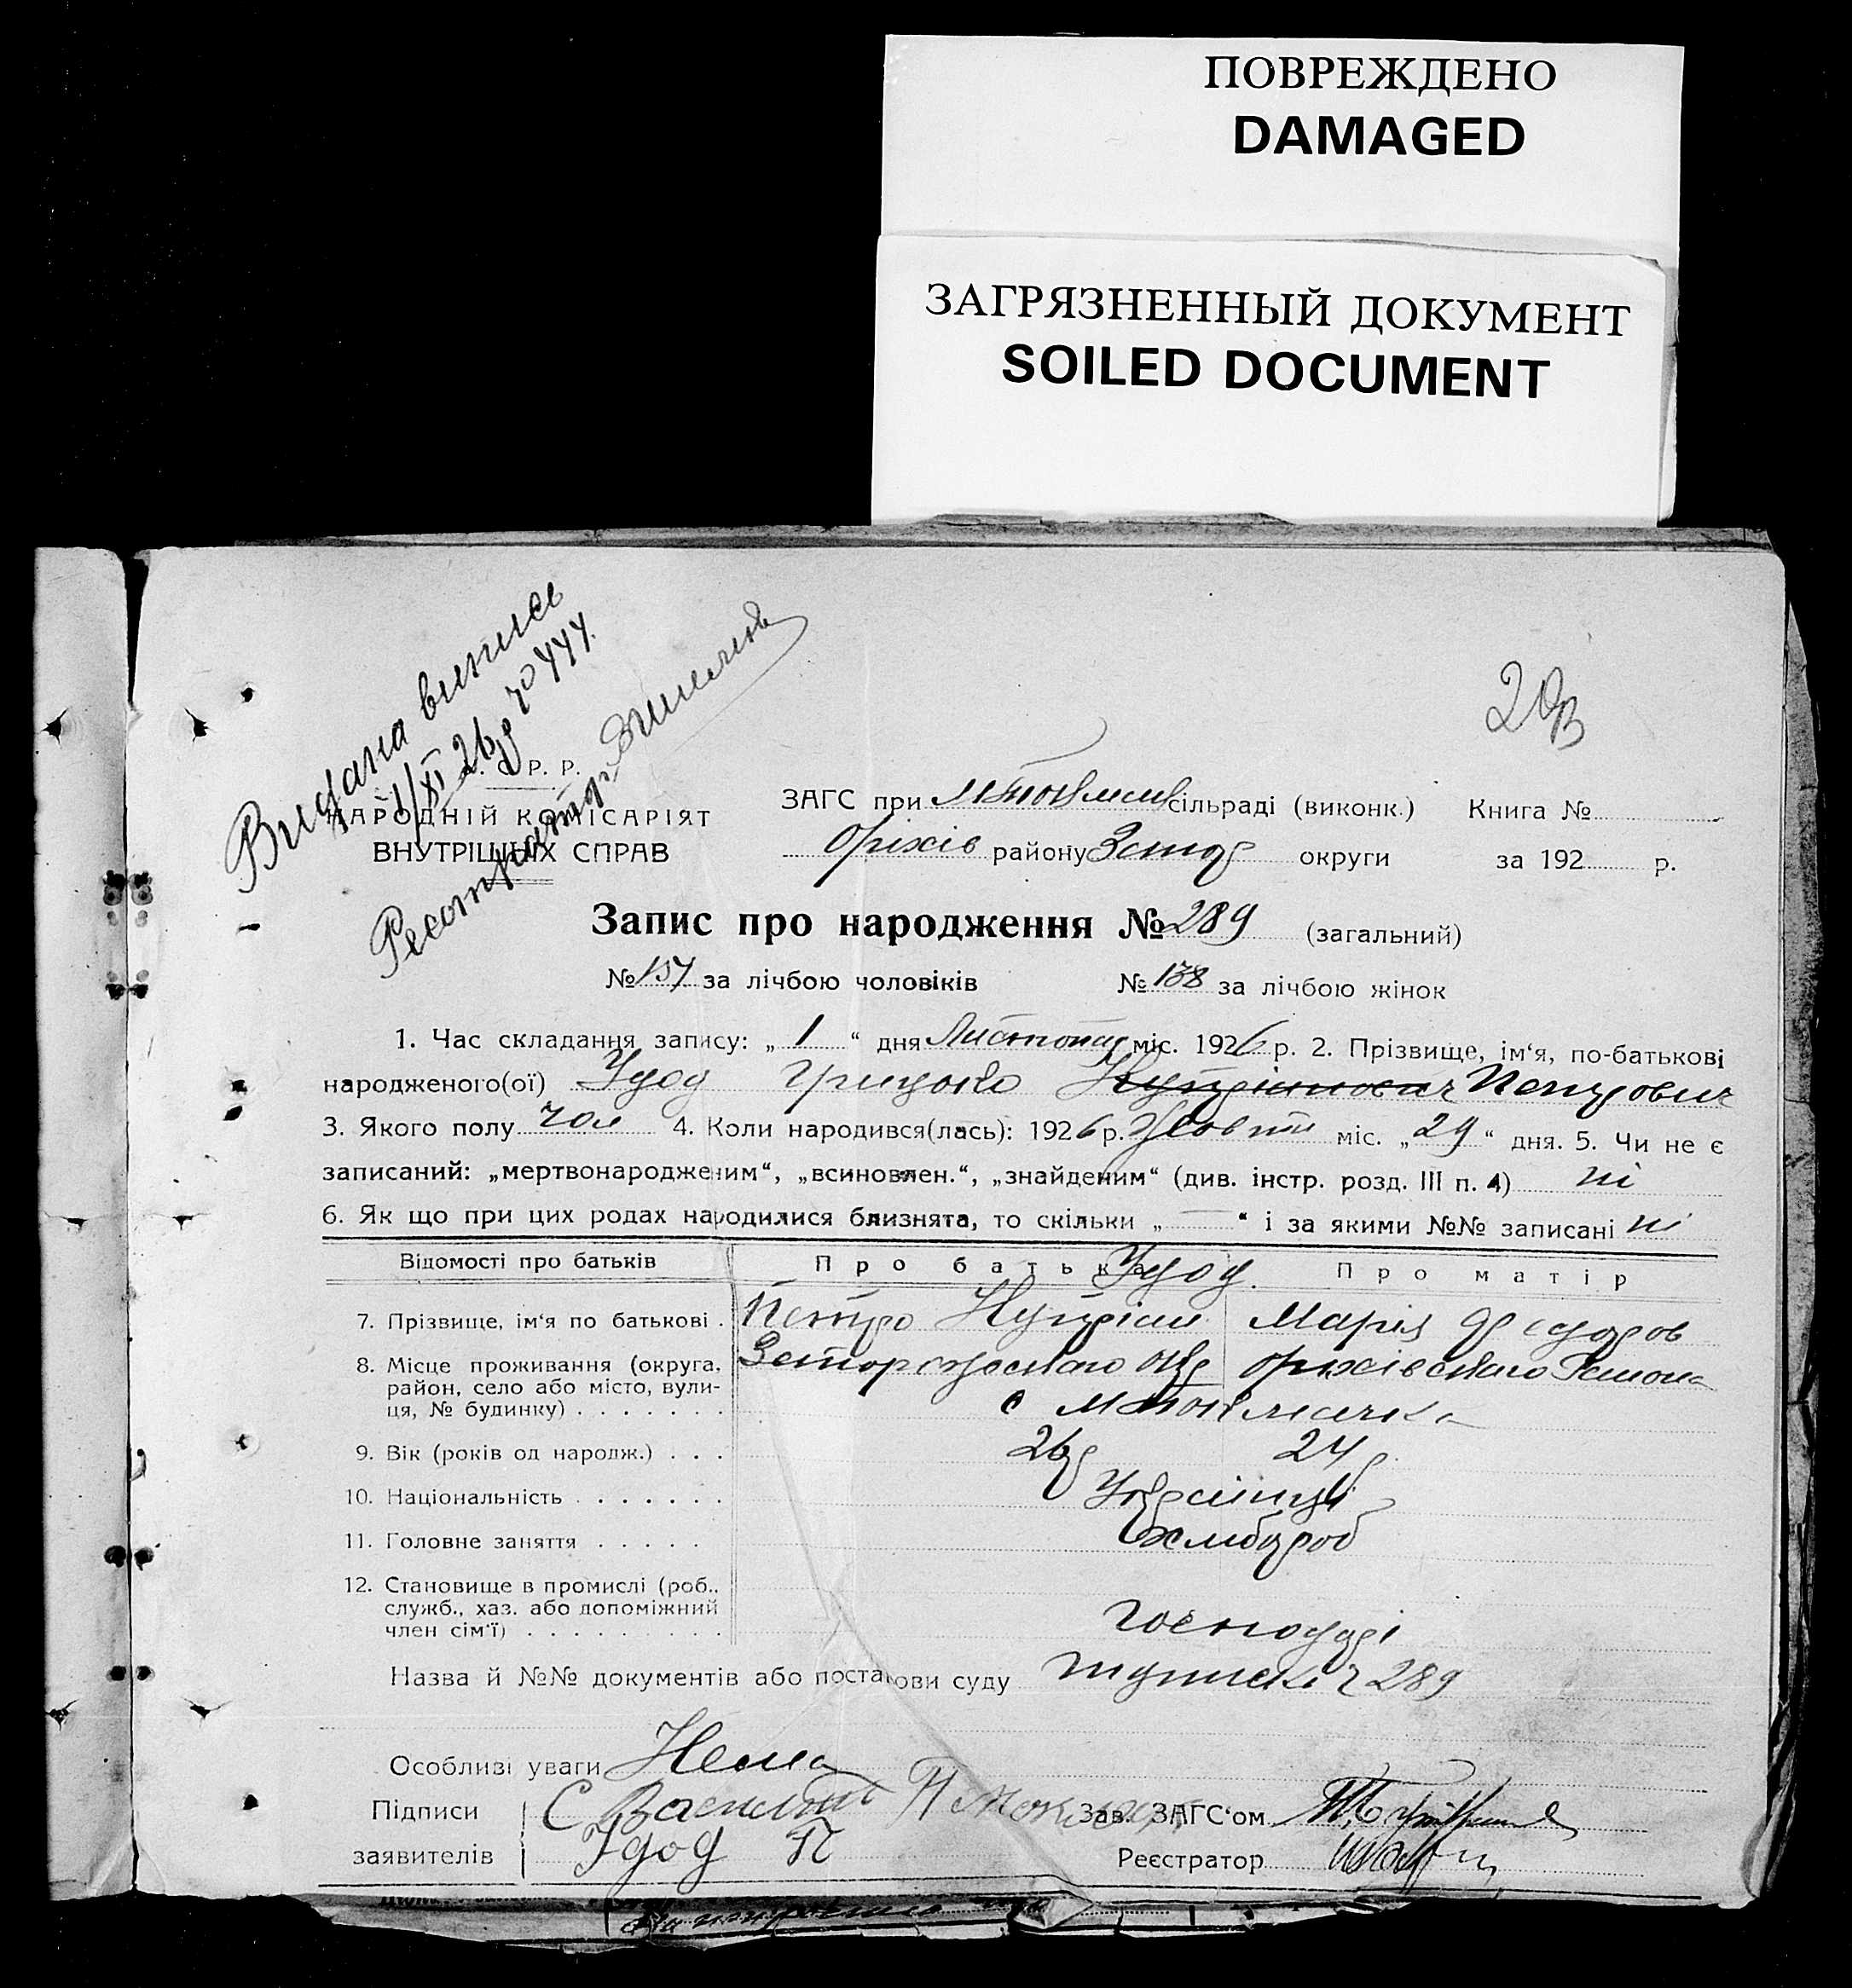 ПОВРЕЖДЕНО
DAMAGED
ЗАГРЯЗНЕННЫЙ ДОКУМЕНТ
SOILED DOCUMENT
Видана випись
1/XI 26р
20в
С. Р. Р.
НАРОДНІЙ КОМІСАРІЯТ
ВНУТРІШНІХ СПРАВ
ЗАГС при сільраді (виконк.) Книга №
Оріхів району Запор округи за 192 р.
Запис про народження № 289 (загальний)
№ 157 за лічбою чоловіків № 138 за лічбою жінок
1. Час складання запису: „ 1 “ дня Листопад міс. 1926 р. 2. Прізвище, ім‘я, по-батькові
народженого(ої) Удод Грицько Купріянович Петрович
3. Якого полу чол 4. Коли народився(лась): 1926 р. Жовтн міс. „ 29 “ дня. 5. Чи не є
записаний: „мертвонародженим“, „всиновлен.“, „знайденим“ (див. інстр. розд. III п. 4) ні
6. Як що при цих родах народилися близнята, то скільки „ — “ і за якими №№ записані ні
Відомості про батьків Про батька Удод Про матір
7. Прізвище, ім‘я по батькові . Петро Купріян Марія Федоров
8. Місце проживання (округа, Запорозького окр Оріхівського Района
район, село або місто, вули-
ця, № будинку) . . . . . . . с
9. Вік (років од народж.) . . . 26р 24р
10. Національність . . . . . . . Українці
11. Головне заняття . . . . . хлібороб
12. Становище в промислі (роб.,
служб., хаз. або допоміжний
член сім‘ї) . . . . . . . . . . господарі
Назва й №№ документів або постанови суду 289
Особливі уваги Нема
Підписи Зав. ЗАГС‘ом
заявителів Удод П Реєстратор